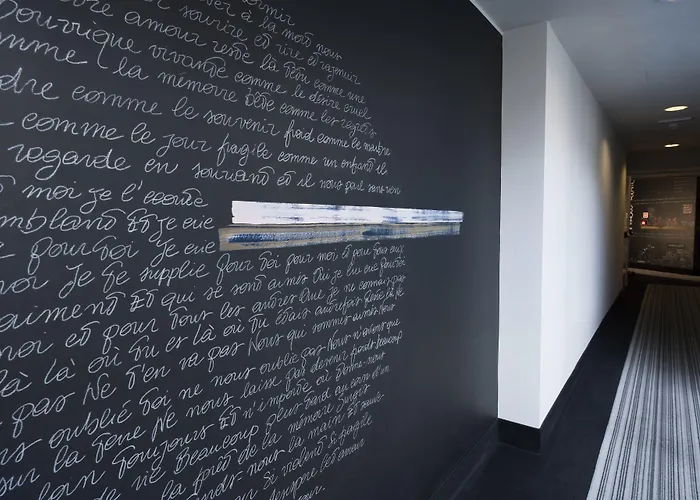 dormir
sourire et rire et rajeunir
tre amour reste là Têtu comme une
Bourrique vivante comme le désir cruel
omme la mémoire Bête comme les regrets
dre comme le souvenir froid comme le marbre
comme le jour fragile comme un enfant il
regarde en souriant et il nous parle sans rien
moi je l'écoute
mblant Et je crie
pour toi Je crie
Je te supplie pour toi pour moi et pour tous ceux
aiment Et qui se sont aimés Oui je lui crie pour toi
moi et pour tous les autres Que je ne connais pas
là là où tu es là où tu étais autrefois Reste là ne
pas Ne t'en va pas Nous qui sommes aimés Nous
oublié Toi ne nous oublie pas Nous n'avions que
sur la Terre Ne nous laisse pas devenir froids Beaucoup
loin Toujours Et n'importe où Donne-nous
de vie Beaucoup plus tard au coin d'un
la forêt de la mémoire Surgis
nous la main Et sauve
si violent Si fragile